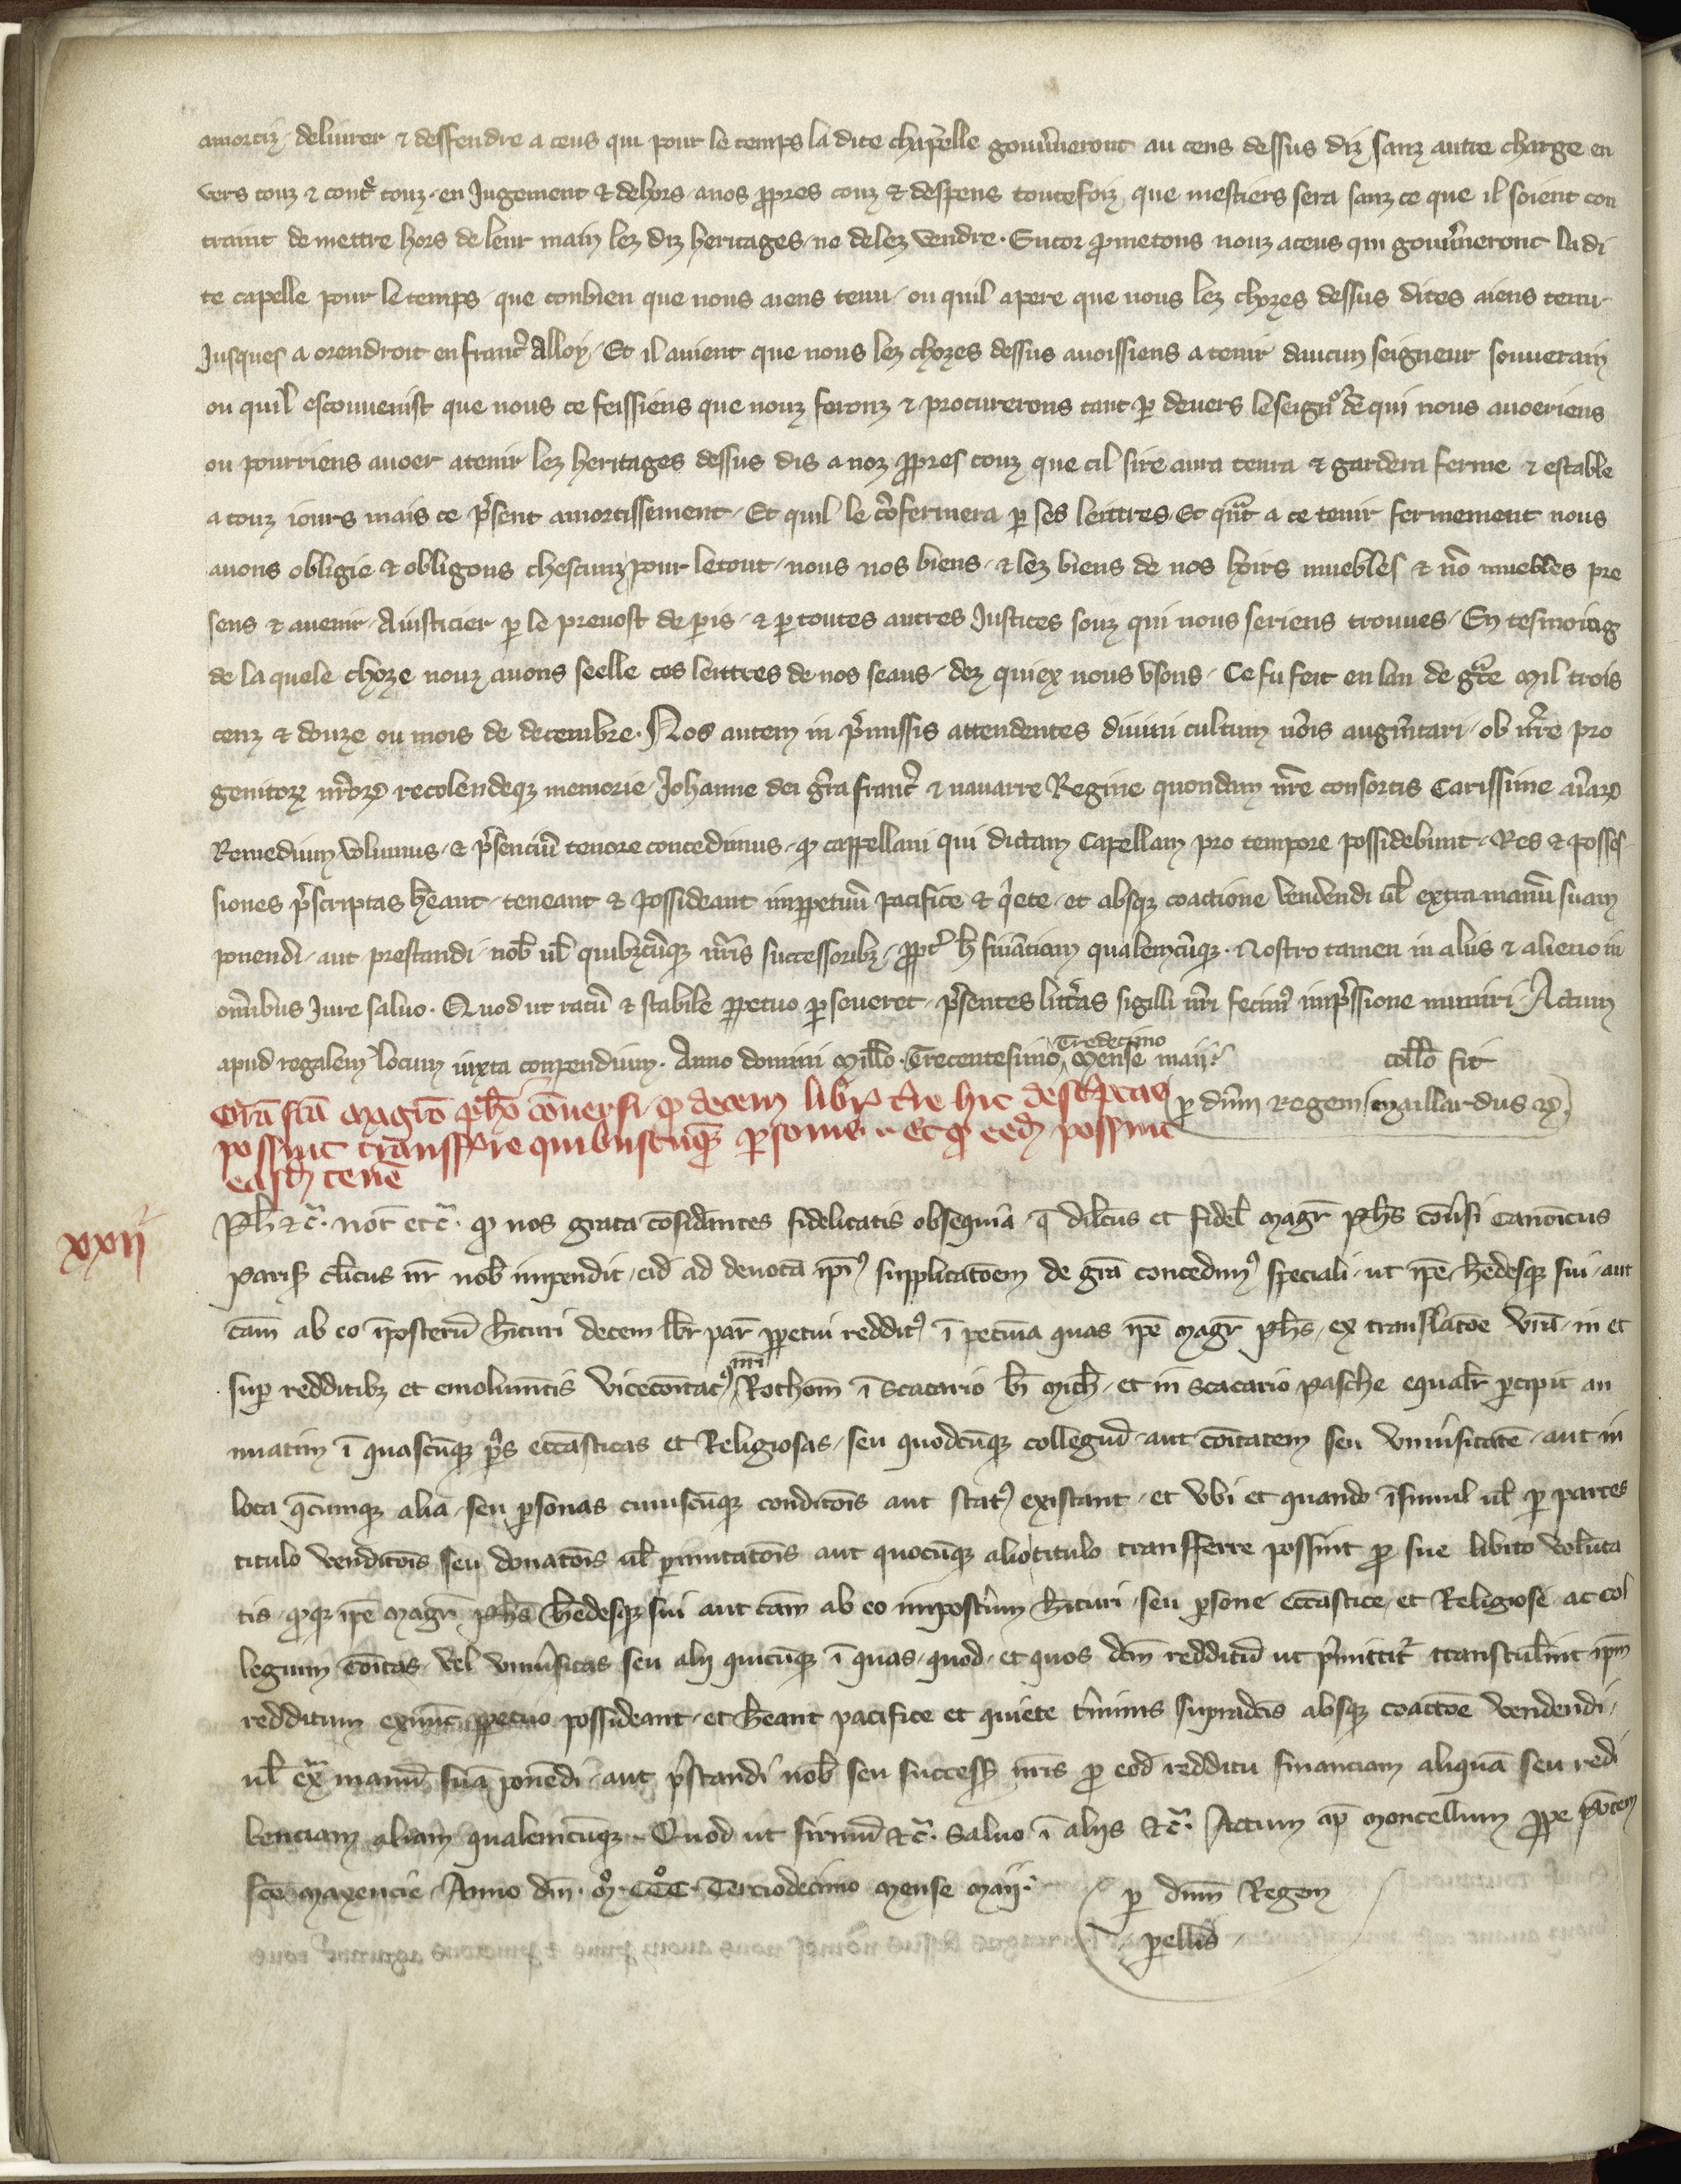 amortiz, delivrer et deffendre a ceus qui pour le temps la dite chapelle gouv̾neront au cens dessus diz sanz autre charge en
vers touz et cont̾ touz en Jugement et dehors a nos ꝓpres couz et despens toutefoiz que mestiers sera sanz ce que il soient con
traint de mettre hors de leur main lez diz heritages ne de lez vendre. Encor ꝓmetons nouz a ceus qui gouv̾neront la di
te capelle pour le temps que conbien que nous aiens tenu ou quil apere que nous lez chozes dessus dites aiens tenu
Jusques a orendroit en franc̾ alloy, Et il avient que nous lez chozes dessus avoissiens a tenir daucun seigneur souverain
ou quil esconvenist que nous ce feissiens que nouz feronz et procurerons tant ꝑ devers le seignᵒʳ de qui nous avoeriens
ou pourriens avoer a tenir lez heritages dessus dis a noz ꝓpres couz que cil sire aura tenra et gardera ferme et estable
a touz iours mais ce p̾sent amortissement. Et quil le cōfermera ꝑ ses lettres. Et quāt a ce tenir fermement nous
avons obligie et obligons chescunz pour le tout nous nos biens et lez biens de nos hoirs muebles et nō muebles pre
sens et avenir A iusticier ꝑ le prevost de p̄is et ꝑ toutes autres Justices souz qui nous seriens trouves. En tesmoing
de la quele choze nouz avons seelle ces lettres de nos seaus dez quiex nous usons. Ce fu fait en lan de gr̄ce mil trois
cenz et douze ou mois de decembre. Nos autem in p̾missis attendentes divini cultum nōis augm̄tari ob nr̄e pro
genitorꝝ nr̄orꝝ recolendeqꝫ memorie Johanne dei gr̄a franc̾ et navarre Regine quondam nr̄e consortis Carissime ai̾arꝝ
Remedium volumus et p̾senciū tenore concedimus qꝫ cappellani qui dictam Capellam pro tempore possidebunt Res et posses
siones p̾scriptas hēant teneant et possideant imꝑpetuū pacifice et q̾ete et absqꝫ coactione vendendi ul̄ extra manū suam
ponendi aut prestandi nob̄ ul̄ quibꝫcūqꝫ nr̄is successoribꝫ ꝓpt̾ h̄ finātiam qualemcūqꝫ. Nostro tamen in aliis et alieno in
omībus Jure salvo. Quod ut ratū et stabile ꝑpetuo ꝑseveret p̾sentes litt̾as sigilli nr̄i fecimꝰ imp̾ssione muniri. Actum
apud regalem locum iuxta conpendium. Anno domini mill̄o. Trecentesimo Tredecimo Mense maii. coll̄o fit
Gr̄a fc̄a magr̄o ph̄o conversi qꝫ decem libr̾ t̾re hic descriptas ꝑ dn̄m regem maillardus
possint transferre quibuscūqꝫ personis. Et qꝫ eed̄ possint
easd̄ tenē
xxij
Ph̄ etc̄. not̄ etc̄. qꝫ nos grata cōsid̾antes fidelitatis obsequia q̄ dilc̄us et fidel̄ magr̄ Ph̄s cōv̾si canonicus
Parisꝰ cl̄icus nr̄ nob̄ impendit eid̄ ad devotā ipīꝰ supplicatōem de gr̄a concedimꝰ speciali ut ipē h̾edesqꝫ sui aut
cām ab eo īposterū h̄ituri decem lb̄r par̄ ꝑpetui redditꝰ ī pecunia quas ipē magr̄ Ph̄s ex translatōe in et
suꝑ redditibꝫ et emolum̄tis vicecōitatꝰ nr̄i Rothom̄ ī Scacario b̄i mich̄ et in scacario Pasche equalr̄ ꝑcipit an
nuatim ī quascūqꝫ ꝑs̄ ecc̄asticas et Religiosas seu quodcūqꝫ collegiū aut cōitatem seu univ̾sitatē aut in
loca qēcumqꝫ alia seu ꝑsonas cuiuscūqꝫ conditōis aut statꝰ existant et ubi et quando īsimul ul̄ ꝑ partes
titulo venditōis seu donatōis ul̄ ꝑmutatōis aut quocūqꝫ alio titulo transferre possint ꝓ sue libito volūta
tis qꝫqꝫ ipē magr̄ Ph̄s h̾edesqꝫ sui aut cām ab eo impost̾um h̄ituri seu ꝑsone ecc̄astice et Religiose ac col
legium cōitas vel univ̾sitas seu alij quicūqꝫ ī quas quod et quos dc̄m redditū ut p̾mittit̾ transtul̾int ipm̄
redditum exnūc ꝑpetuo possideant et h̄eant pacifice et quiete t̾minis supradc̄is absqꝫ coactōe vendendi
ul̄ ext̾ manū suā ponēdi aut p̾standi nob̄ seu success̄ nr̄is ꝓ eod̄ redditu financiam aliquā seu redi
benciam aliam qualemcūqꝫ. Quod ut firmū etc̄. Salvo ī aliis etc̄. Actum ap̄ moncellum ꝓpe Pōtem
sc̄e maxencie. Anno dn̄i mᵒ. CCCᵒ. Terciodecimo mense maij.
ꝑ dn̄m Regem
ꝑellis